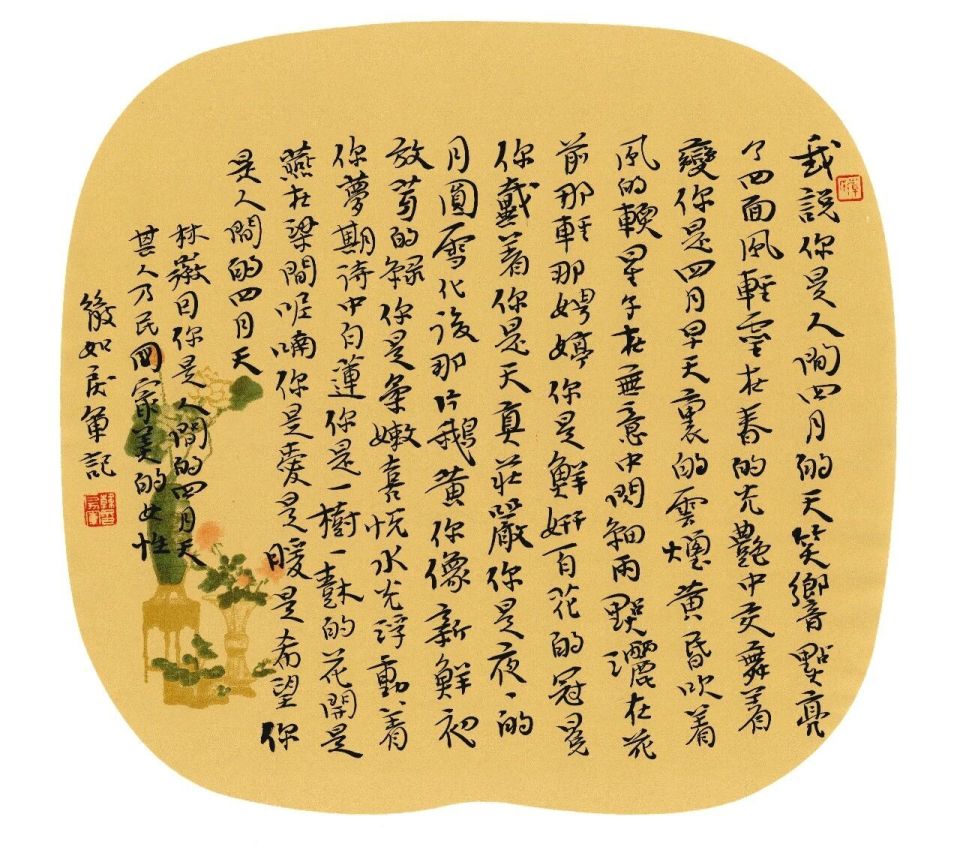 我說你是人間四月的天笑響點亮
了四面風輕靈在春的光艷中交舞着
變你是四月早天裏的雲煙黄昏吹着
風的軟星子在無意中閃細雨點灑在花
前那輕那娉婷你是鮮妍百花的冠冕
你戴着你是天真莊嚴你是夜、的
月圓雪化後那片鵝黄你像新鮮初
放芽的綠你是柔嫩喜悦水光浮動着
你夢期待中白蓮你是一樹一樹的花開是
燕在梁間呢喃你是愛是暖是希望你
是人間的四月天
林徽因你是人間的四月天
其人乃民國最美的女性
如居軍記